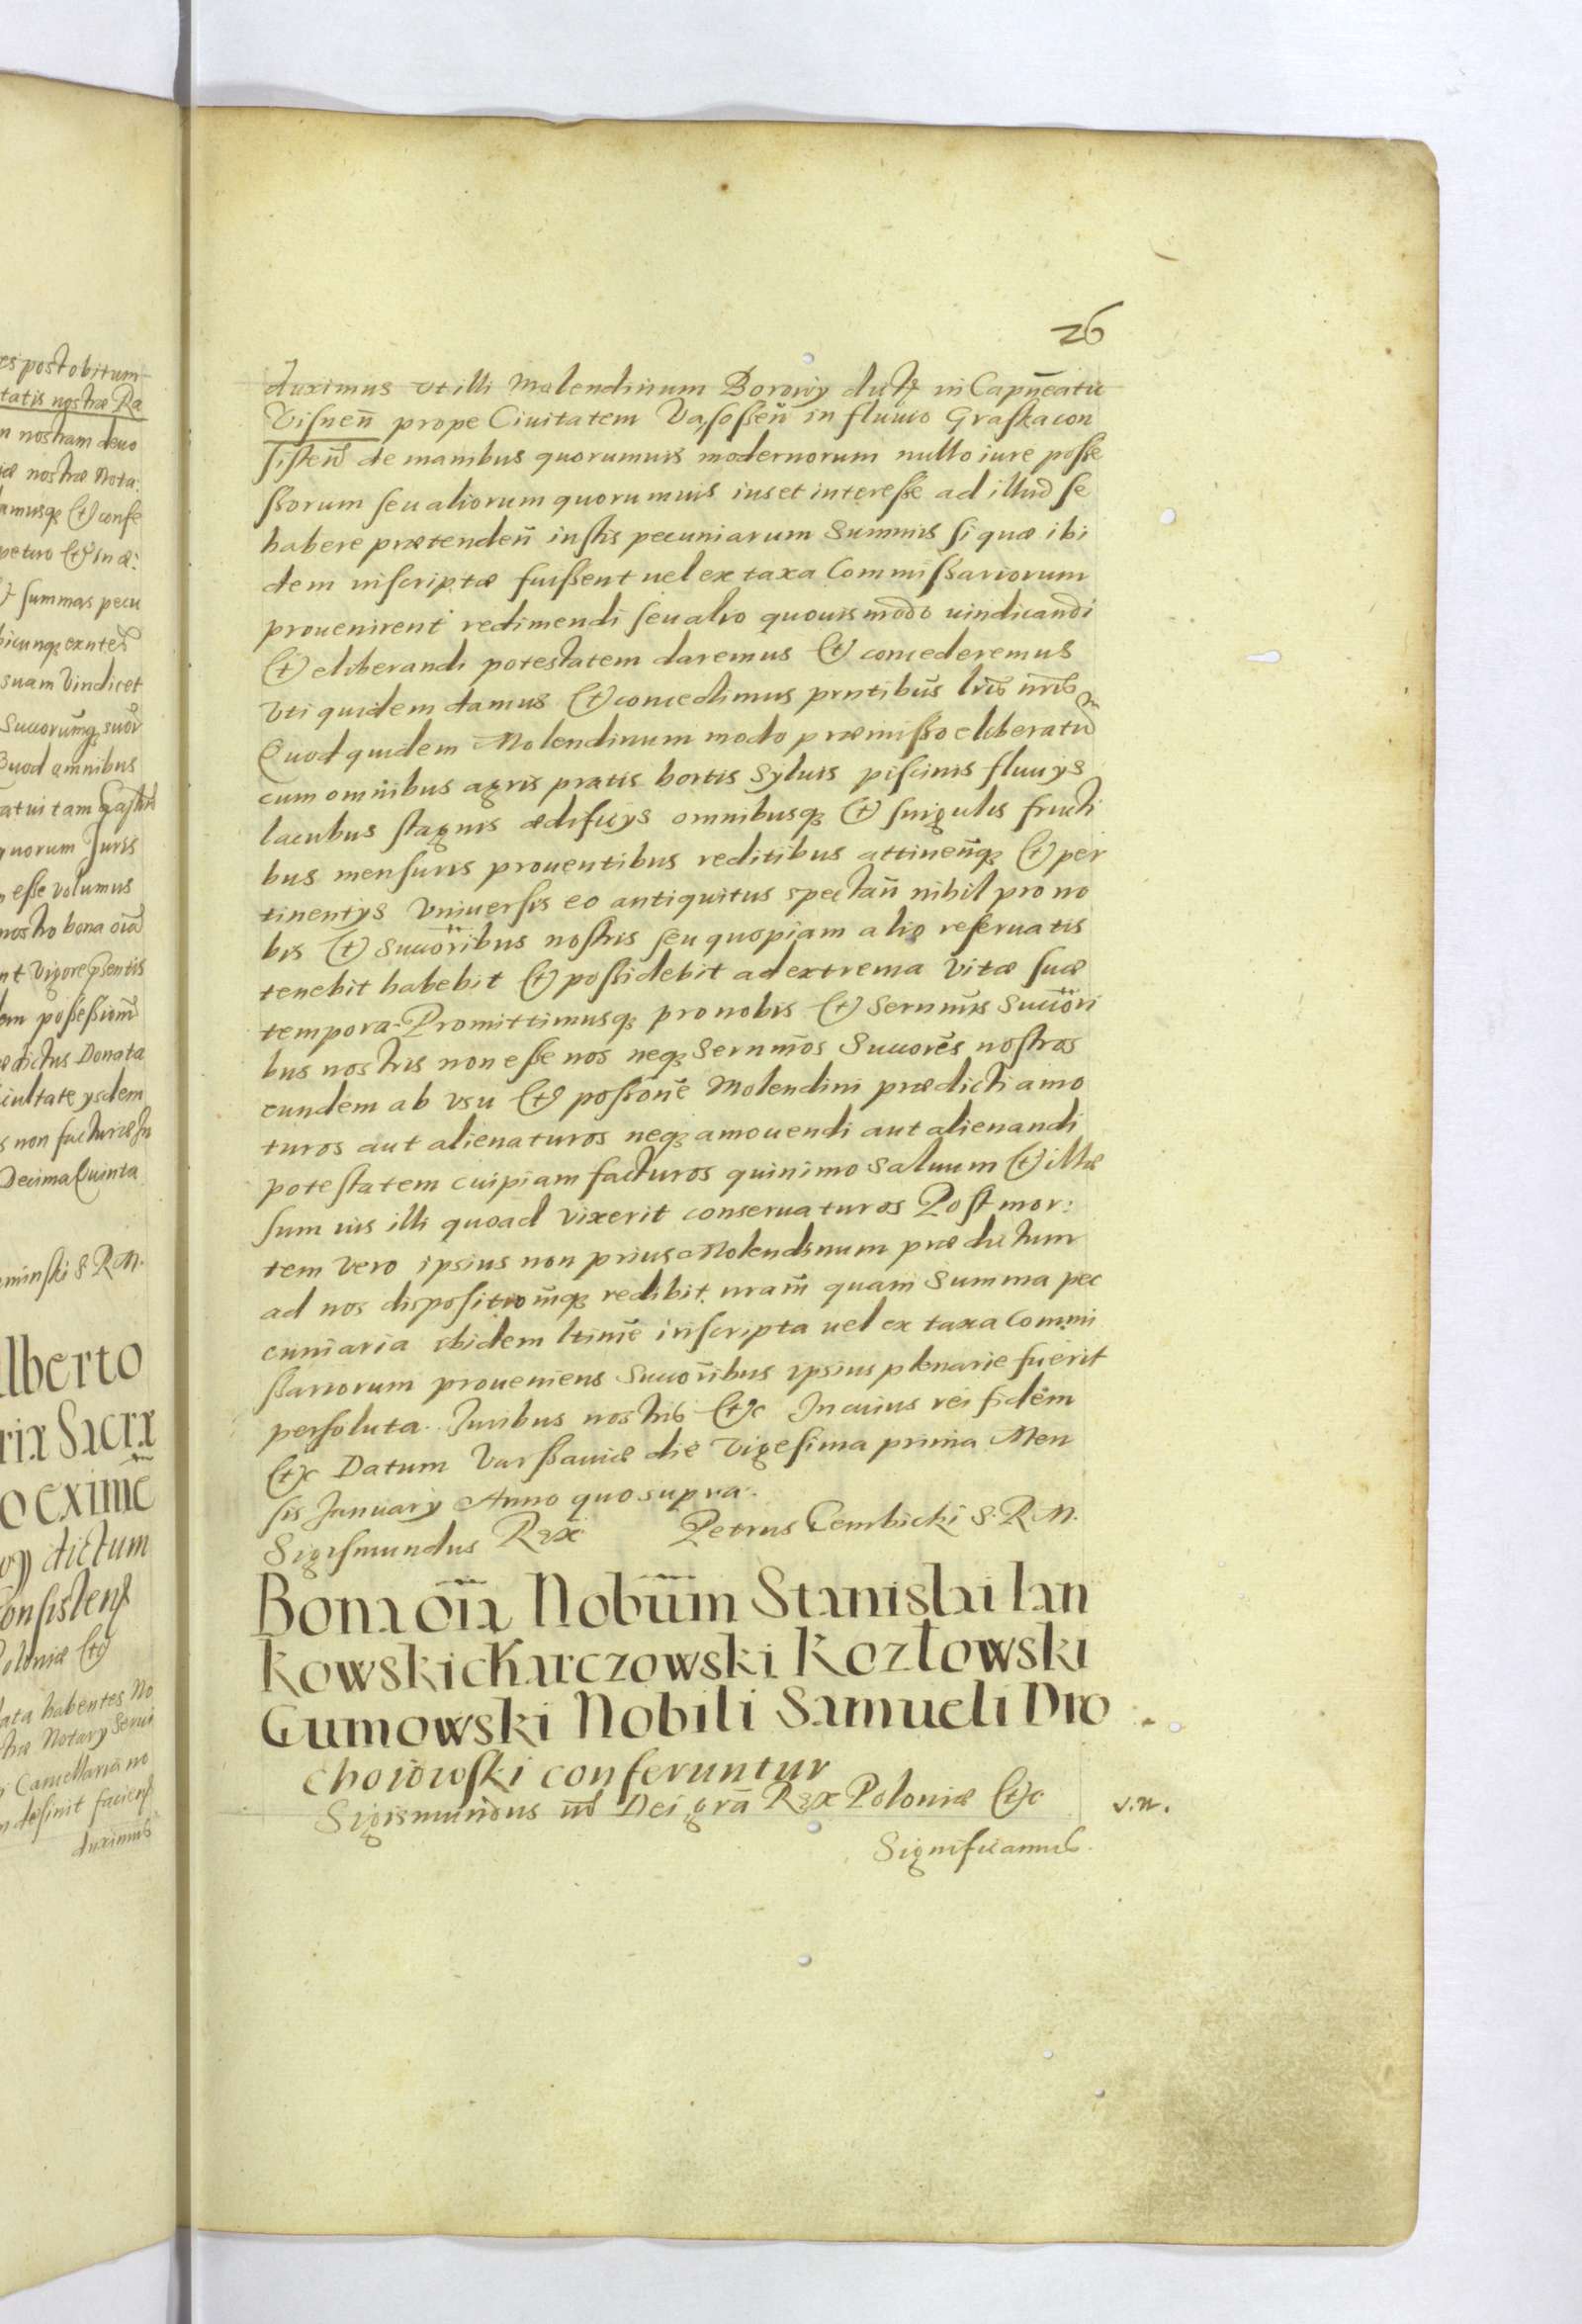 es post obitum
tatis nostræ Ra
n nostram deuo
iæ nostræ Nota:
amusq; (et) confe
petuo (et) in æ:
summas pecu
bicunq; exnteῶ
suam Vindicet
Succorumq; suor
Quod omnibus
quorum Juris
esse volumus
nostro bona oīa
nt Vigore pſentis
em poſeſsionē
ædictus Donata
cultate ysdem
s non facturæ
Decima Quinta
minſki S R M.
lberto
riæ Sacræ
o exime
oy dictum
onsistenſ
oloniæ (et)
ata habentes No
træ Notary
Cancellaria no
desinit facienſ
duximus
26
duximus vt illi Molendinum Borowy dictū in Capn̄eatu
Viſnen̄ prope Ciuitatem Vaſoſsen̄ in fluuio Graſka con
ſiſten̄ de manibus quorumuis modernorum nullo iure poſſe
ſsorum ſeu aliorum quorumuis ius et intereſſe ad illud ſe
habere prætenden̄ iuſtis pecuniarum Summis ſi quæ ibi
dem inſcriptæ fuiſsent uel ex taxa Commiſsariorum
prouenirent redimendi ſeu alio quouis modo uindicandi
(et) eliberandi potestatem daremus (et) concederemus
Vti quidem damus (et) concedimus prntibus lrīs nrīs
Quod quidem Molendinum modo præmiſso eliberatum
cum omnibus agris pratis hortis Syluis piſcinis fluuys
lacubus ſtagnis ædificys omnibusq; (et) ſingulis fructi
bus menſuris prouentibus reditibus attinen̄q; (et) per
tinentys Vniuerſis eo antiquitus spectan̄ nihil pro no
bis (et) Succōribus noſtris ſeu quopiam alio reſeruatis
tenebit habebit (et) poſsidebit ad extrema Vitæ ſuæ
tempora. Promittimusq; pro nobis (et) Sernmīs Succōri
bus nostris non eſſe nos neq; Sernmōs Succorēs noſtros
eundem ab vsu (et) poſsonē Molendini prædicti amo
turos aut alienaturos neq; amouendi aut alienandi
poteſtatem cuipiam facturos quinimo Saluum (et) illæ
ſum ius illi quoad vixerit conseruaturos Poſt mor:
tem vero ipsius non prius Molendinum prædictum
ad nos dispoſitionēq; redibit nram̄ quam Summa pec
cuniaria ibidem ltimē inſcripta uel ex taxa Commi
ſsariorum proueniens Succōribus ipsius plenarie fuerit
perſoluta. Juribus nostris (et)c In cuius rei fidem
(et)c Datum Varſsauiæ die Vigeſima prima Men
ſis January Anno quo supra.
Sigiſmundus Rex Petrus Gembicki S. R. M.
Bona oīa Nobiūm Stanislai Ian
kowski Karczowski Kozłowski
Gumowski Nobili Samueli Dro
choiowſki conferuntur
Sigismundus iiī Dei grā Rex Poloniæ (et)c
v. n.
Significamus